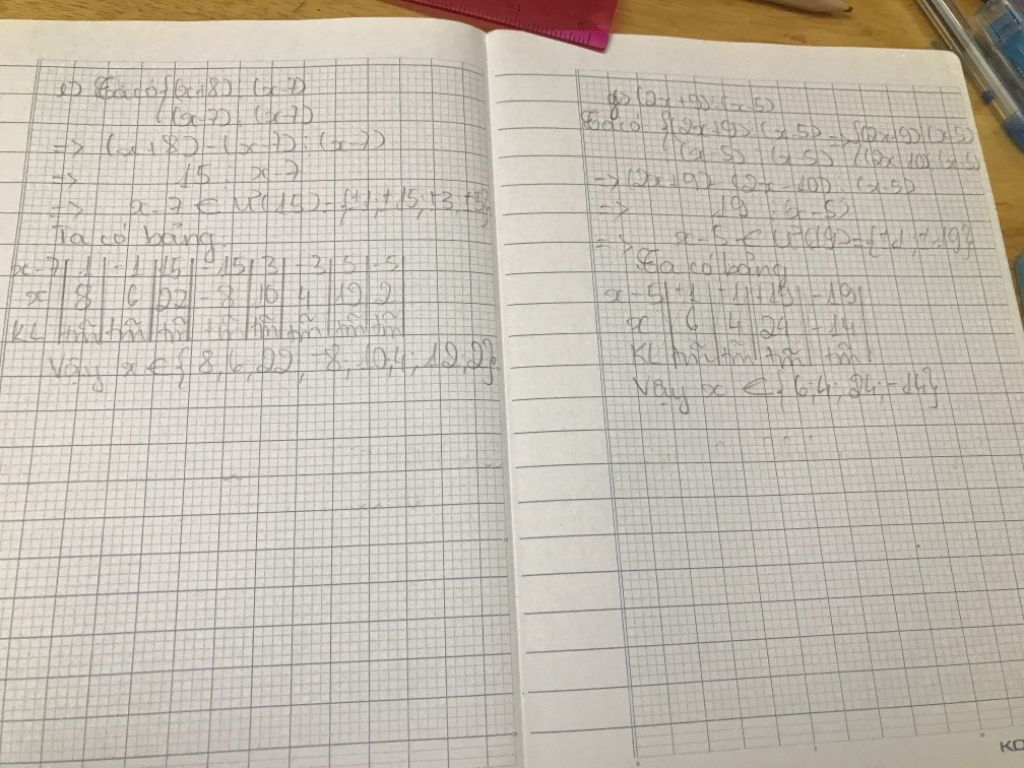 e) Ta có {(x+8) ⋮ (x-7)
{(x-7) ⋮ (x-7)
=> (x+8) - (x-7) ⋮ (x-7)
=> 15 ⋮ x-7
=> x-7 ∈ Ư(15) = {±1, ±15, ±3, ±5}
Ta có bảng.
x-7 | 1 | -1 | 15 | -15 | 3 | -3 | 5 | -5
x | 8 | 6 | 22 | -8 | 10 | 4 | 12 | 2
KL | tm | tm | tm | tm | tm | tm | tm | tm
Vậy x ∈ {8, 6, 22, -8, 10, 4, 12, 2}.
g) (2x+9) ⋮ (x-5)
Ta có {(2x+9) ⋮ (x-5) => {(2x+9) ⋮ (x-5)
{(x-5) ⋮ (x-5) {(2x-10) ⋮ (x-5)
=> (2x+9) - (2x-10) ⋮ (x-5)
=> 19 ⋮ (x-5)
=> x-5 ∈ Ư(19) = {±1, ±19}
Ta có bảng
x-5 | +1 | -1 | +19 | -19 |
x | 6 | 4 | 24 | -14
KL | tm | tm | tm | tm |
Vậy x ∈ {6; 4; 24; -14}
KO